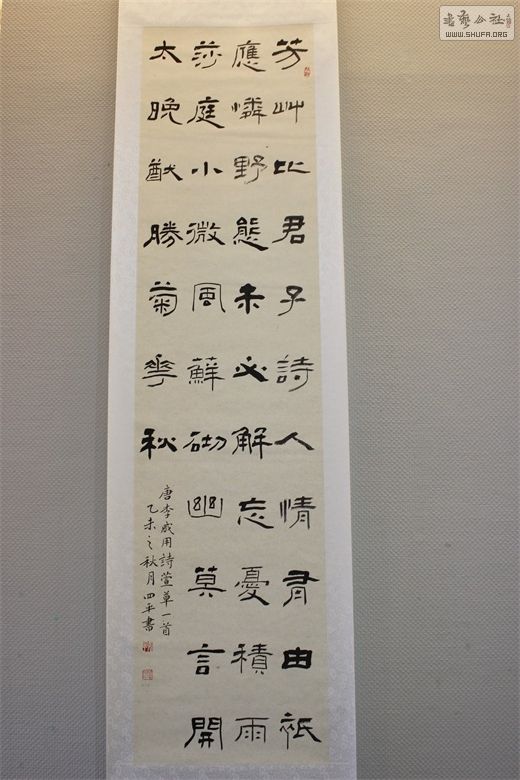 芳艸比君子詩人情有由祇
應憐野態未必解忘憂積雨
莎庭小微風蘚砌幽莫言開
太晚猷勝菊華秋
唐李咸用詩萱草一首
乙未之秋月四平書
书艺公社
WWW.SHUFA.ORG